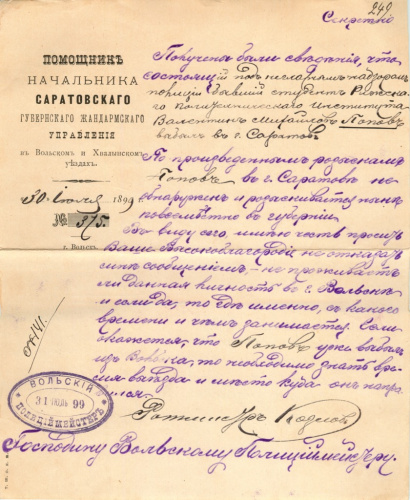 249
Секретно
ПОМОЩНИКЪ
НАЧАЛЬНИКА
САРАТОВСКАГО
ГУБЕРНСКАГО ЖАНДАРМСКАГО
УПРАВЛЕНІЯ
въ Вольскомъ и Хвалынскомъ
уѣздахъ.
30 Іюля 1899
№ 375.
г. Вольскъ
Получены были свѣдѣнія, что
состоящій подъ негласнымъ надзоромъ
полиціи бывшій студентъ Рижска-
го политехническаго института
Валентинъ Михайловъ Поповъ
въ г. Саратовъ
По произведеннымъ розыскамъ
Поповъ въ г. Саратовѣ не
обнаруженъ и разыскивается нынѣ
повсемѣстно въ губерніи.
Въ виду сего имѣю честь просить
Ваше Высокоблагородіе не отказать
сообщеніемъ, не проживаетъ
ли данная личность въ г. Вольскѣ
и если да, то гдѣ именно, съ какого
времени и чѣмъ занимается. Если
окажется, что Поповъ уже выбылъ
изъ Вольска, то необходимо знать вре-
мя выѣзда и мѣсто куда онъ напра-
вился.
Ротмистръ
Господину Вольскому Полиціймейстеру.
ВОЛЬСКІЙ
31 ІЮЛЬ 99
ПОЛИЦІЙМЕЙСТЕРЪ